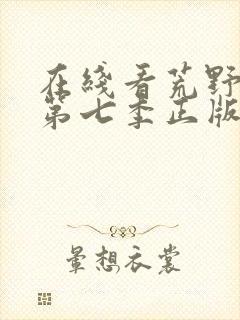 在綫看荒野
第七季正版
暈想衣裳